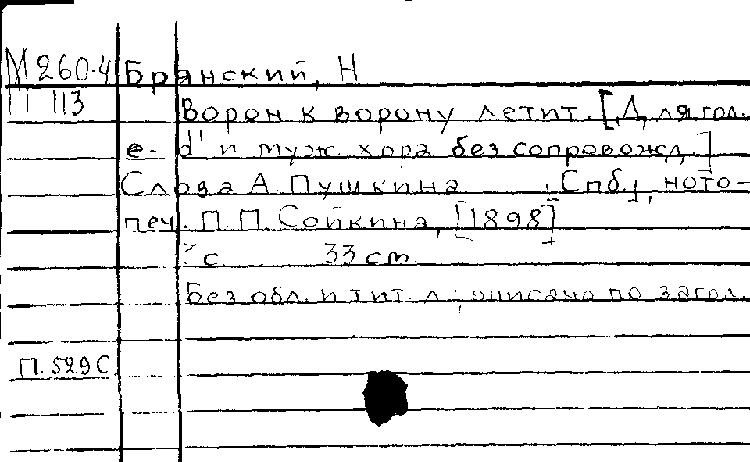 М 260-4 Брянский, Н
П 113 Ворон к ворону летит. [Для гол.
e-d' и муж. хора без сопровожд.]
Слова А. Пушкина. Спб., ното-
печ. П.П. Сойкина, [1898]
с. 33 cm
Без обл. и тит. л.; описано по загол.
П. 529 С